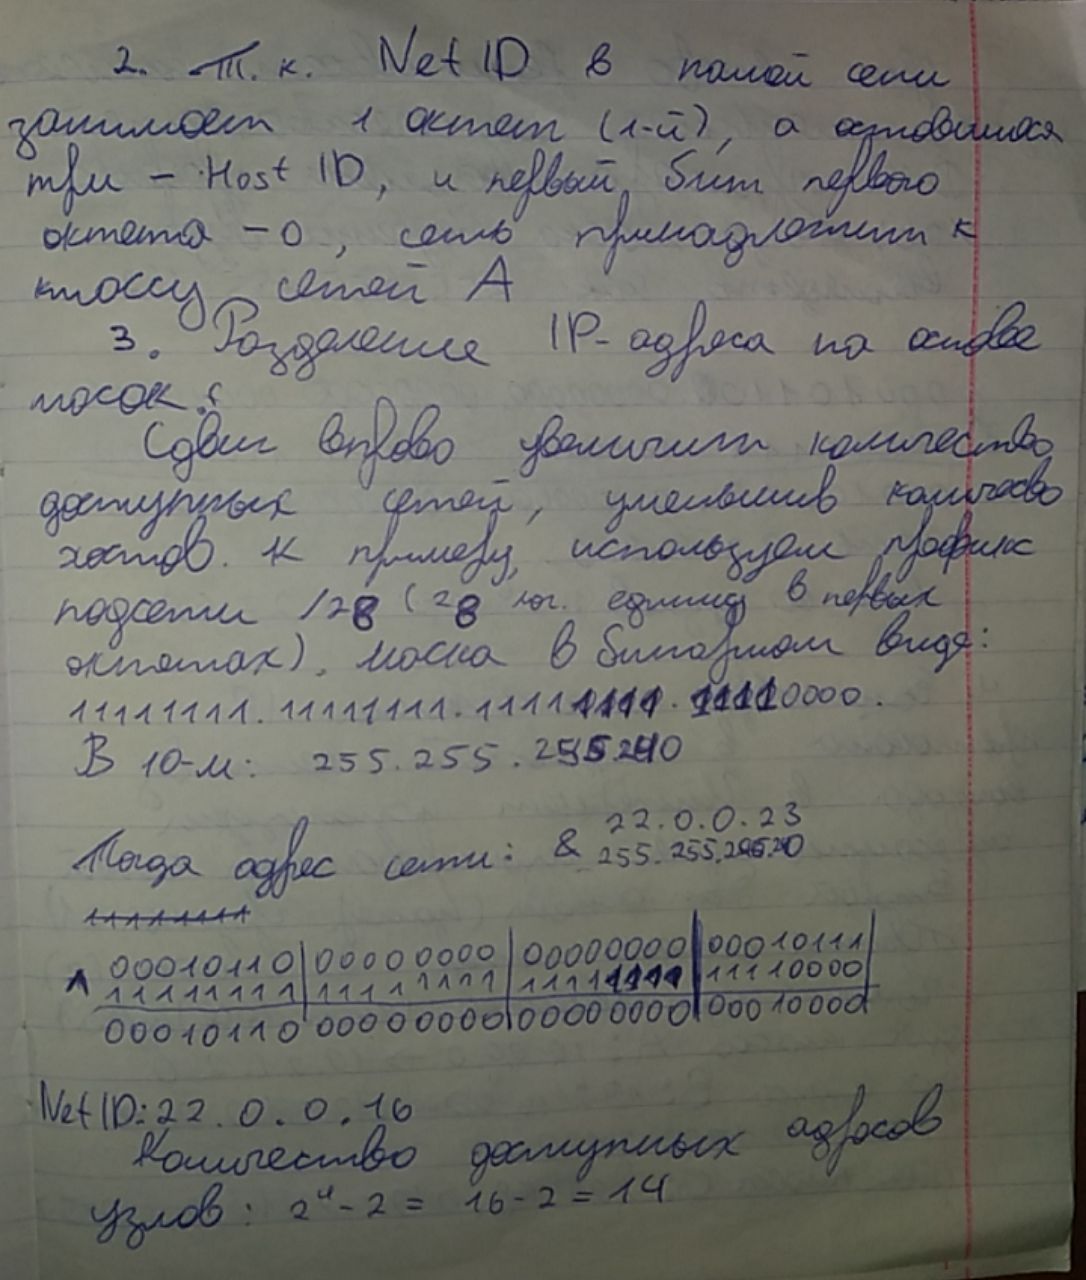 2. Т. к. Net ID в нашей сети
занимает 1 октет (1-й), а оставшиеся
три - Host ID, и первый бит первого
октета - 0, сеть принадлежит к
классу сетей А
3. Разделение IP-адреса на основе
масок.
Сдвиг вправо увеличит количество
доступных сетей, уменьшив количесво
хостов. К примеру, используем префикс
подсети /28 (28 лог. единиц в первых
октетах). Маска в бинарном виде:
11111111.11111111.11111111.11110000.
В 10-м: 255.255.255.240
Тогда адрес сети: & 22.0.0.23
255.255.255.240
11111111
00010110 00000000 00000000 00010111
^ 11111111 11111111 11111111 11110000
00010110 00000000 00000000 00010000
Net ID: 22.0.0.16
Количество доступных адресов
узлов: 2⁴-2 = 16-2 = 14